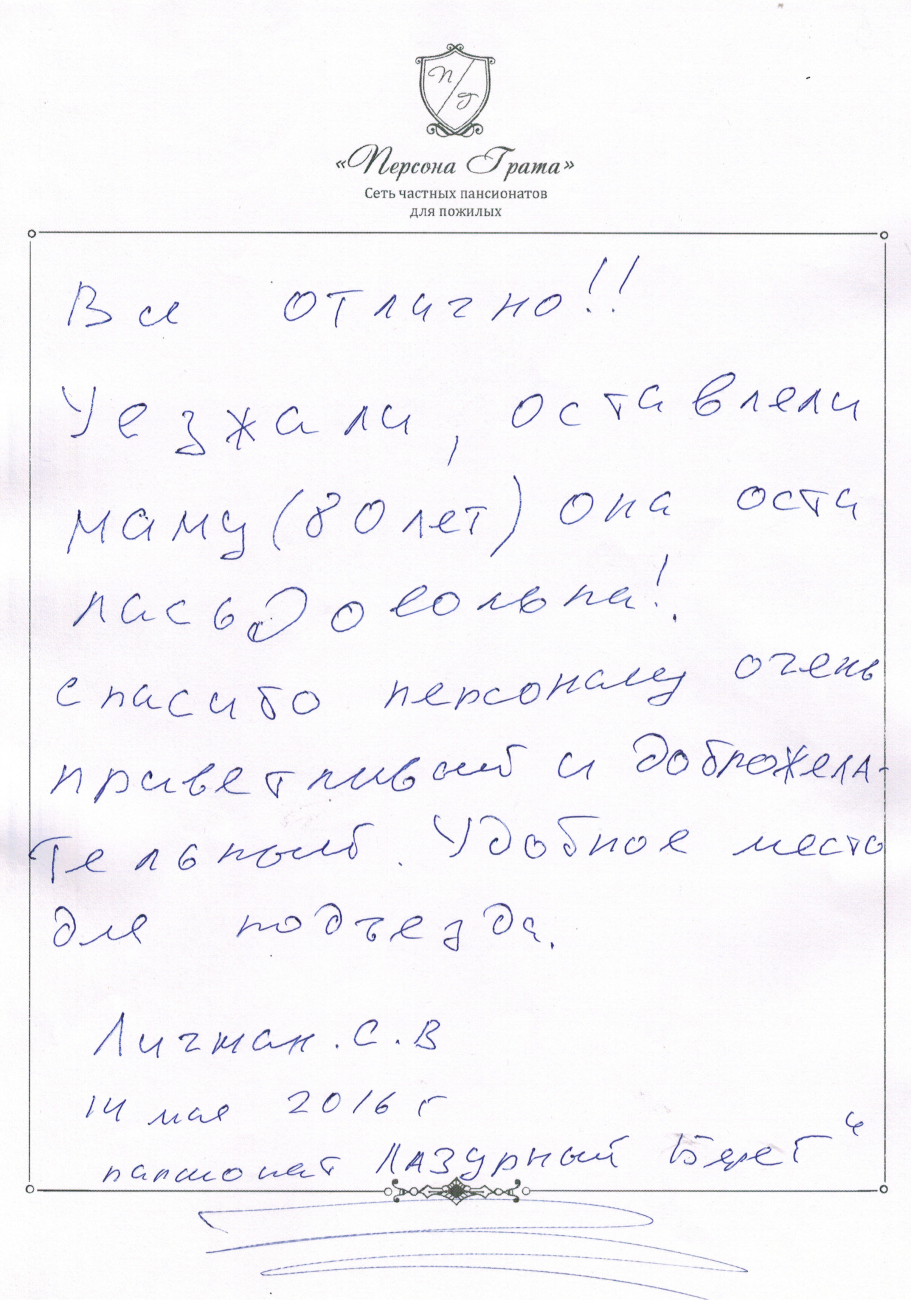 П/Г
«Персона Грата»
Сеть частных пансионатов
для пожилых
Все отлично!!
Уезжали, оставляли
маму (80 лет) она оста
лась довольна!.
спасибо персоналу очень
приветливый и доброжела-
тельный. Удобное место
для подъезда.
Личман. С. В
14 мая 2016 г
пансионат Лазурный Берег"